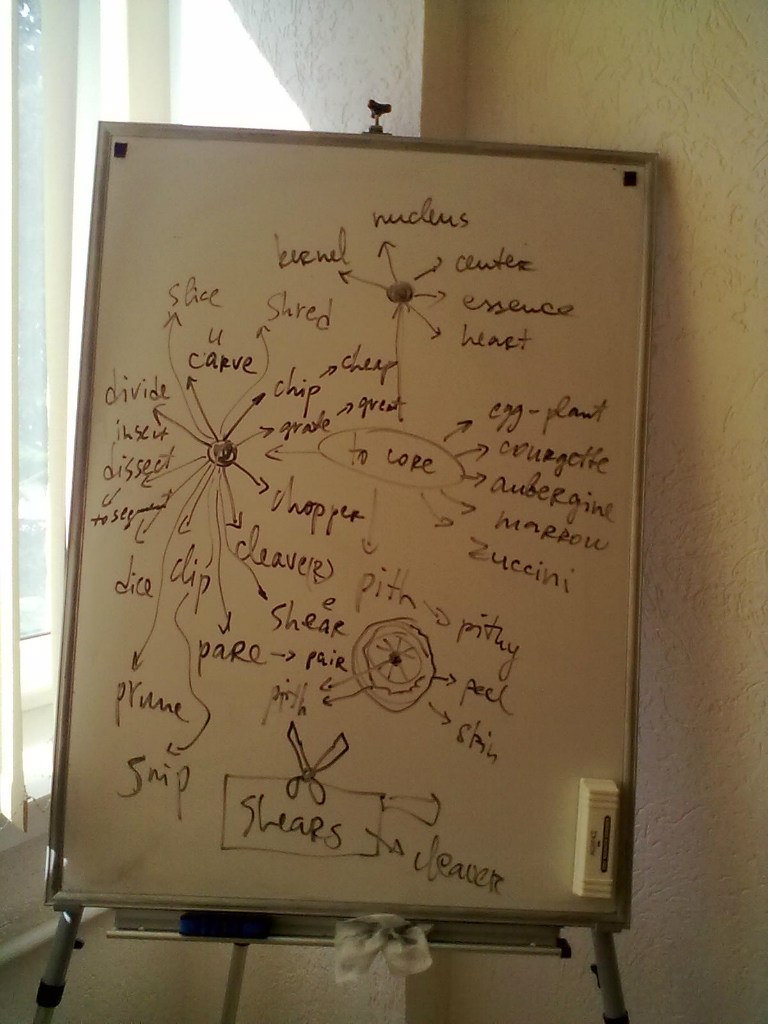 nucleus
kernel
center
essence
heart
slice
shred
carve
chip
cheap
divide
grate
great
insert
dissect
to segment
to core
egg-plant
courgette
aubergine
marrow
zuccini
chopper
cleave(r)
dice
clip
pith
pithy
shear
pare
pair
peel
skin
pith
prune
snip
shears
cleaver